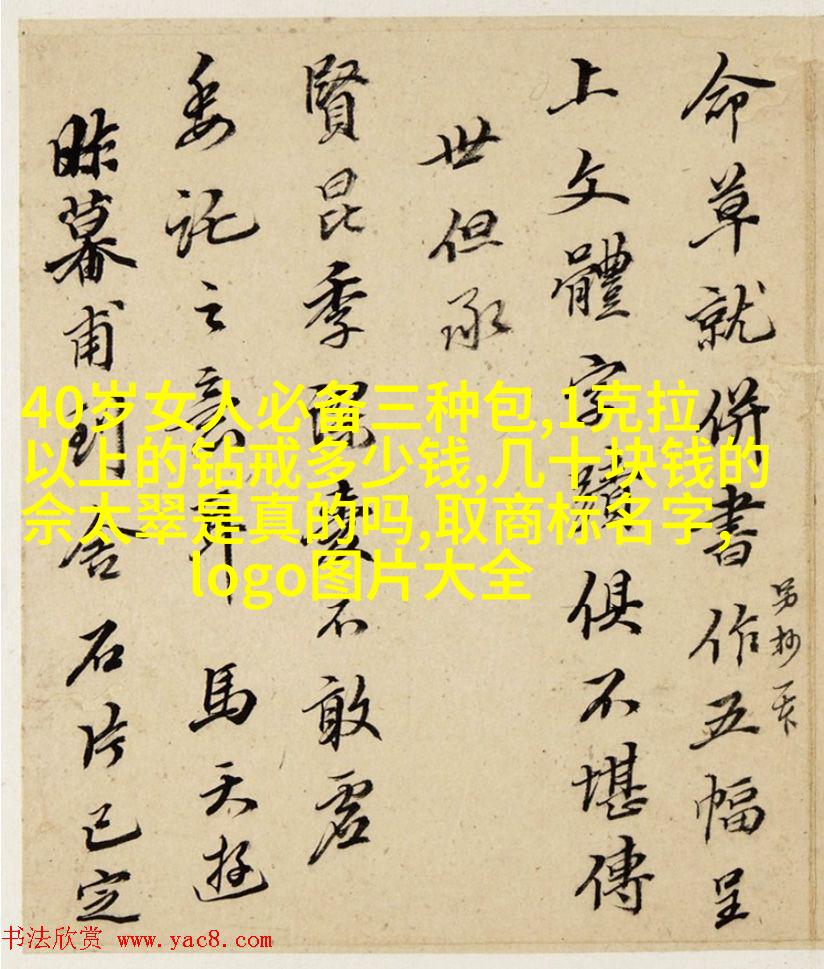 另抄
命草就併書作五幅呈
上文體字蹟俱不堪傳
世但承
賢昆季不敢虛
委託之意耳 馬天遊
昨暮甫到舍石片已定
40岁女人必备三种包,1克拉
以上的钻戒多少钱,几十块钱的
佘太翠是真的吗,取商标名字,
logo图片大全
书法欣赏 www.yac8.com